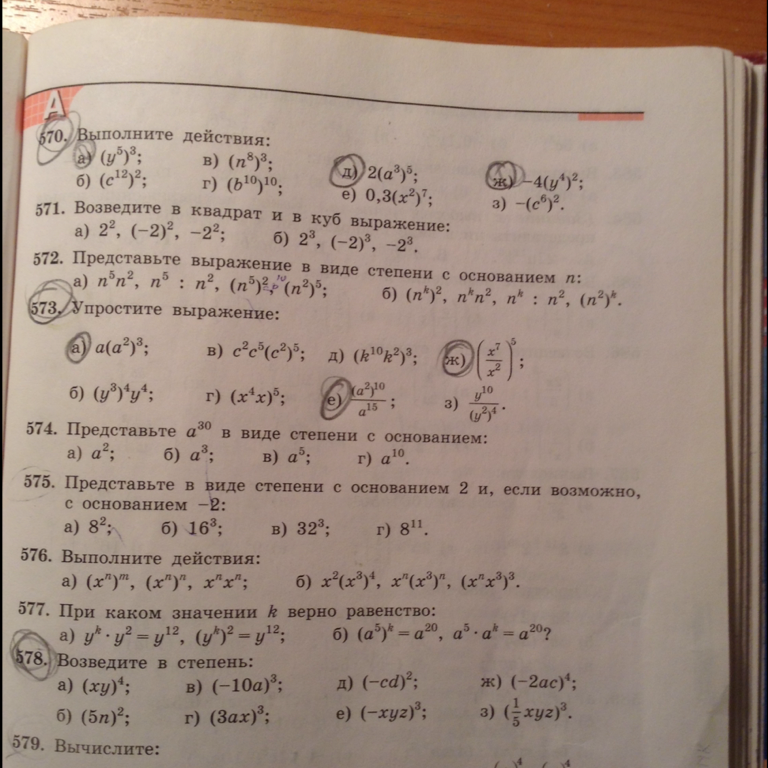 А
570. Выполните действия:
а) (y⁵)³; в) (n⁸)³; д) 2(a³)⁵; ж) −4(y⁴)²;
б) (c¹²)²; г) (b¹⁰)¹⁰; е) 0,3(x²)⁷; з) −(c⁶)².
571. Возведите в квадрат и в куб выражение:
а) 2², (−2)², −2²; б) 2³, (−2)³, −2³.
572. Представьте выражение в виде степени с основанием n:
а) n⁵n², n⁵ : n², (n⁵)², (n²)⁵; б) (nᵏ)², nᵏn², nᵏ : n², (n²)ᵏ.
573. Упростите выражение:
а) a(a²)³; в) c²c⁵(c²)⁵; д) (k¹⁰k²)³; ж) (x⁷/x²)⁵;
б) (y³)⁴y⁴; г) (x⁴x)⁵; е) (a²)¹⁰/a¹⁵; з) y¹⁰/(y²)⁴.
574. Представьте a³⁰ в виде степени с основанием:
а) a²; б) a³; в) a⁵; г) a¹⁰.
575. Представьте в виде степени с основанием 2 и, если возможно,
с основанием −2:
а) 8²; б) 16³; в) 32³; г) 8¹¹.
576. Выполните действия:
а) (xⁿ)ᵐ, (xⁿ)ⁿ, xⁿxⁿ; б) x²(x³)⁴, xⁿ(x³)ⁿ, (xⁿx³)³.
577. При каком значении k верно равенство:
а) yᵏ · y² = y¹², (yᵏ)² = y¹²; б) (a⁵)ᵏ = a²⁰, a⁵ · aᵏ = a²⁰?
578. Возведите в степень:
а) (xy)⁴; в) (−10a)³; д) (−cd)²; ж) (−2ac)⁴;
б) (5n)²; г) (3ax)³; е) (−xyz)³; з) (1/5 xyz)³.
579. Вычислите: